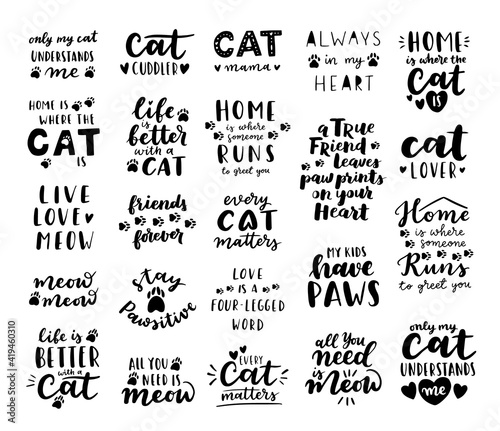 only my cat
UNDERSTANDS
me
cat
CUDDLER
CAT
mama
ALWAYS
in my
HEART
HOME
is where the
Cat
is
HOME IS
WHERE THE
CAT
IS
life
is
better
with a
CAT
HOME
is where
someone
RUNS
to greet you
a TRUE
Friend
leaves
paw prints
on your
Heart
cat
LOVER
LIVE
LOVE
MEOW
friends
forever
every
CAT
matters
Home
is where
someone
Runs
to greet you
meow
meow
stay
Pawsitive
LOVE IS A
FOUR-LEGGED
WORD
MY KIDS
have
PAWS
life is
BETTER
with a
Cat
ALL YOU
NEED IS
meow
EVERY
Cat
matters
all You
need
is meow
only my
Cat
UNDERSTANDS
me
Adobe Stock | #419460310